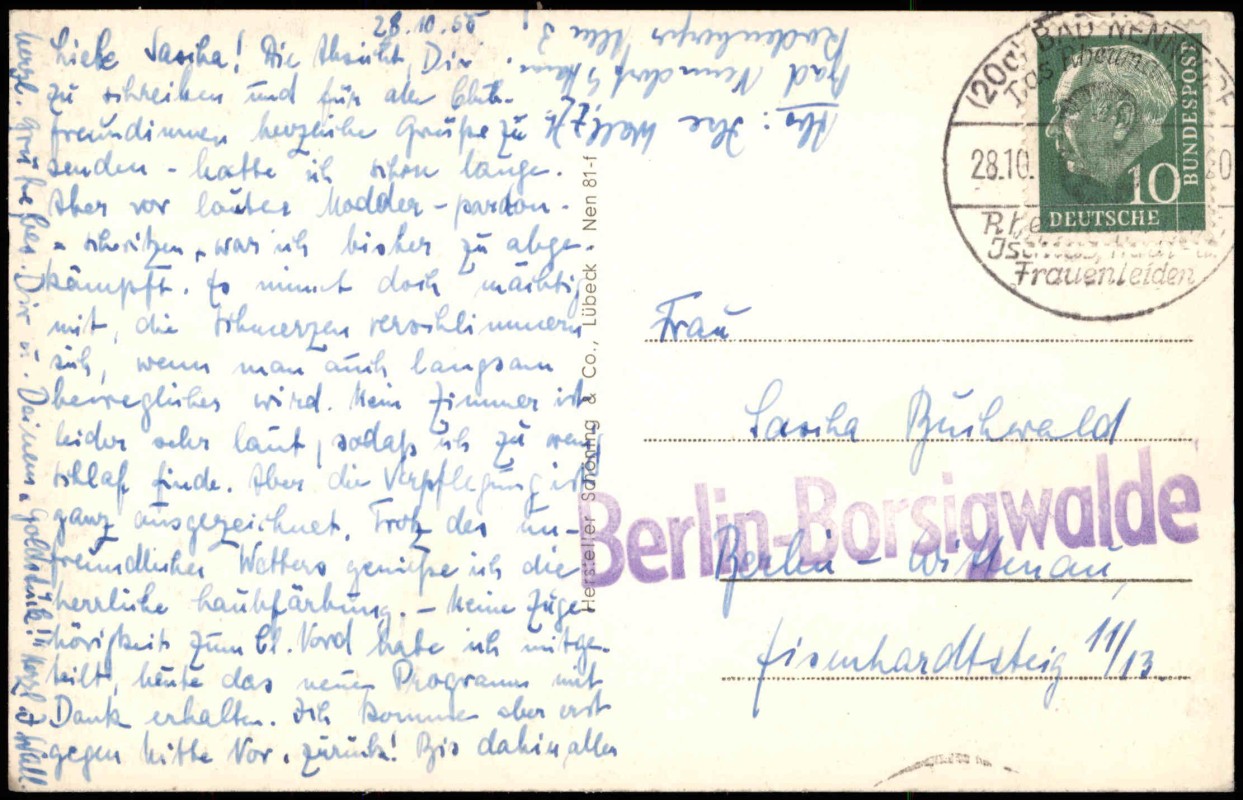 28.10.60
Liebe Sascha! Die Absicht, Dir
zu schreiben und für alle Club-
freundinnen herzliche Grüße zu
senden - hatte ich schon lange.
Aber vor lauter Modder - pardon -
- schwitzen, war ich bisher zu abge-
kämpft. Es nimmt doch mächtig
mit, die Schmerzen verschlimmern
sich, wenn man auch langsam
beweglicher wird. Mein Zimmer ist
leider sehr laut, sodaß ich zu wenig
Schlaf finde. Aber die Verpflegung ist
ganz ausgezeichnet. Trotz des un-
freundlichen Wetters genieße ich die
herrliche Laubfärbung. - Meine Zuge-
hörigkeit zum Cl. Nord habe ich mitge-
teilt, heute das neue Programm mit
Dank erhalten. Ich komme aber erst
gegen Mitte Nov. zurück! Bis dahin alles
herzl. Grüße bes. Dir u. Deinem "Goldstück"! Herzl. J. Wall.
Abs: Ilse Wall, z. Zt.
Bad Nenndorf
Rodenberger
Hersteller Schöning & Co., Lübeck Nen 81-f
(20c) BAD NENNDORF
28.10.
Rheuma
Ischias, Haut- u.
Frauenleiden
10
DEUTSCHE
BUNDESPOST
Frau
Sascha Buchwald
Berlin-Borsigwalde
Berlin-Wittenau,
Eisenhardtsteig 11/13.